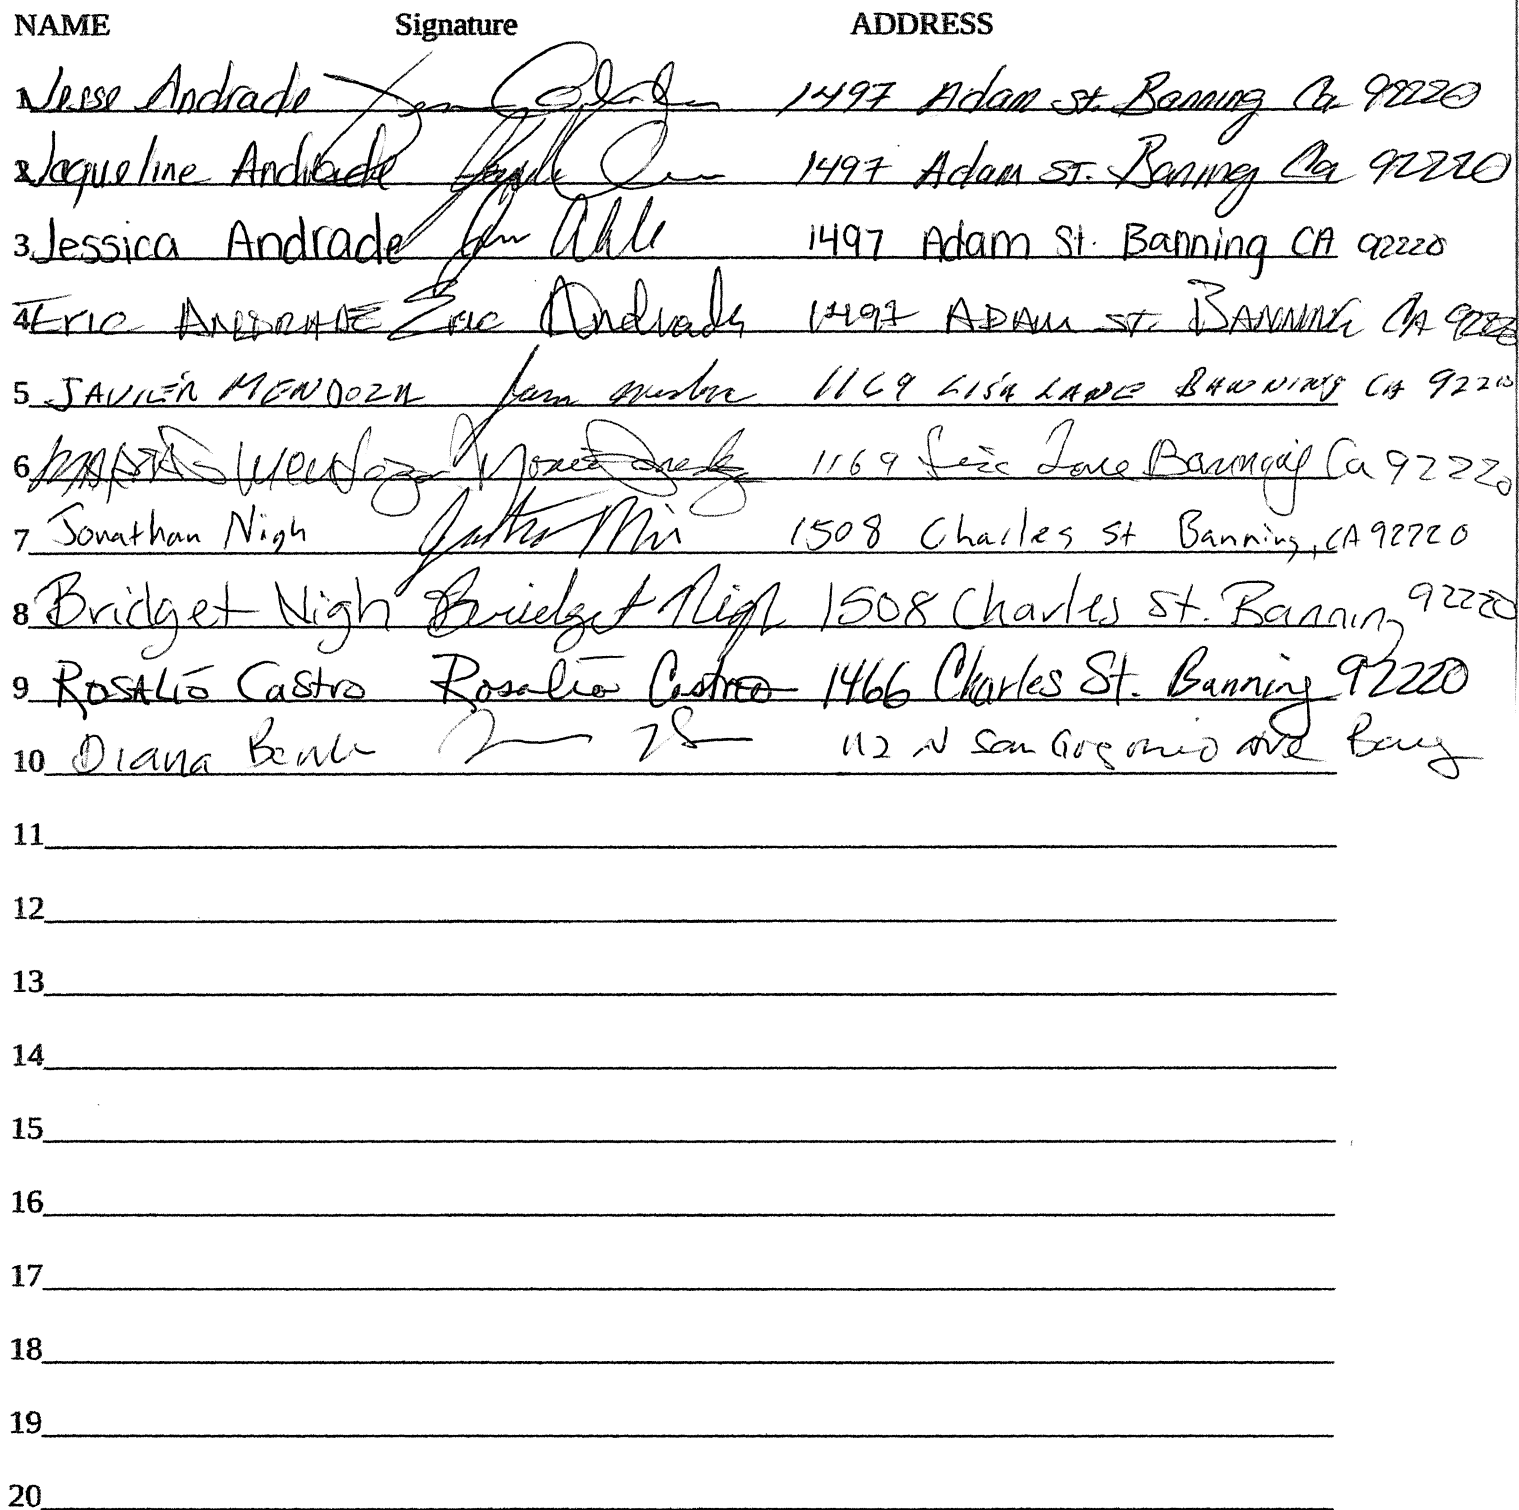 NAME Signature ADDRESS
1 Jesse Andrade 1497 Adam st. Banning Ca 92220
2 Jaqueline Andrade 1497 Adam st. Banning Ca 92220
3 Jessica Andrade 1497 Adam St. Banning CA 92220
4 Eric ANDRADE Eric Andrade 1497 ADAM st. BANNING CA 92220
5 JAVIER MENDOZA 1169 LISA LANE BANNING CA 92220
6 Mendoza 1169 Lane Ca 92220
7 Jonathan Nigh 1508 Charles St Banning, CA 92220
8 Bridget Nigh Bridget Nigh 1508 Charles St. Banning 92220
9 ROSALIO Castro Rosalio Castro 1466 Charles St. Banning 92220
10 Diana 112 N San Gorgonio Ave
11
12
13
14
15
16
17
18
19
20